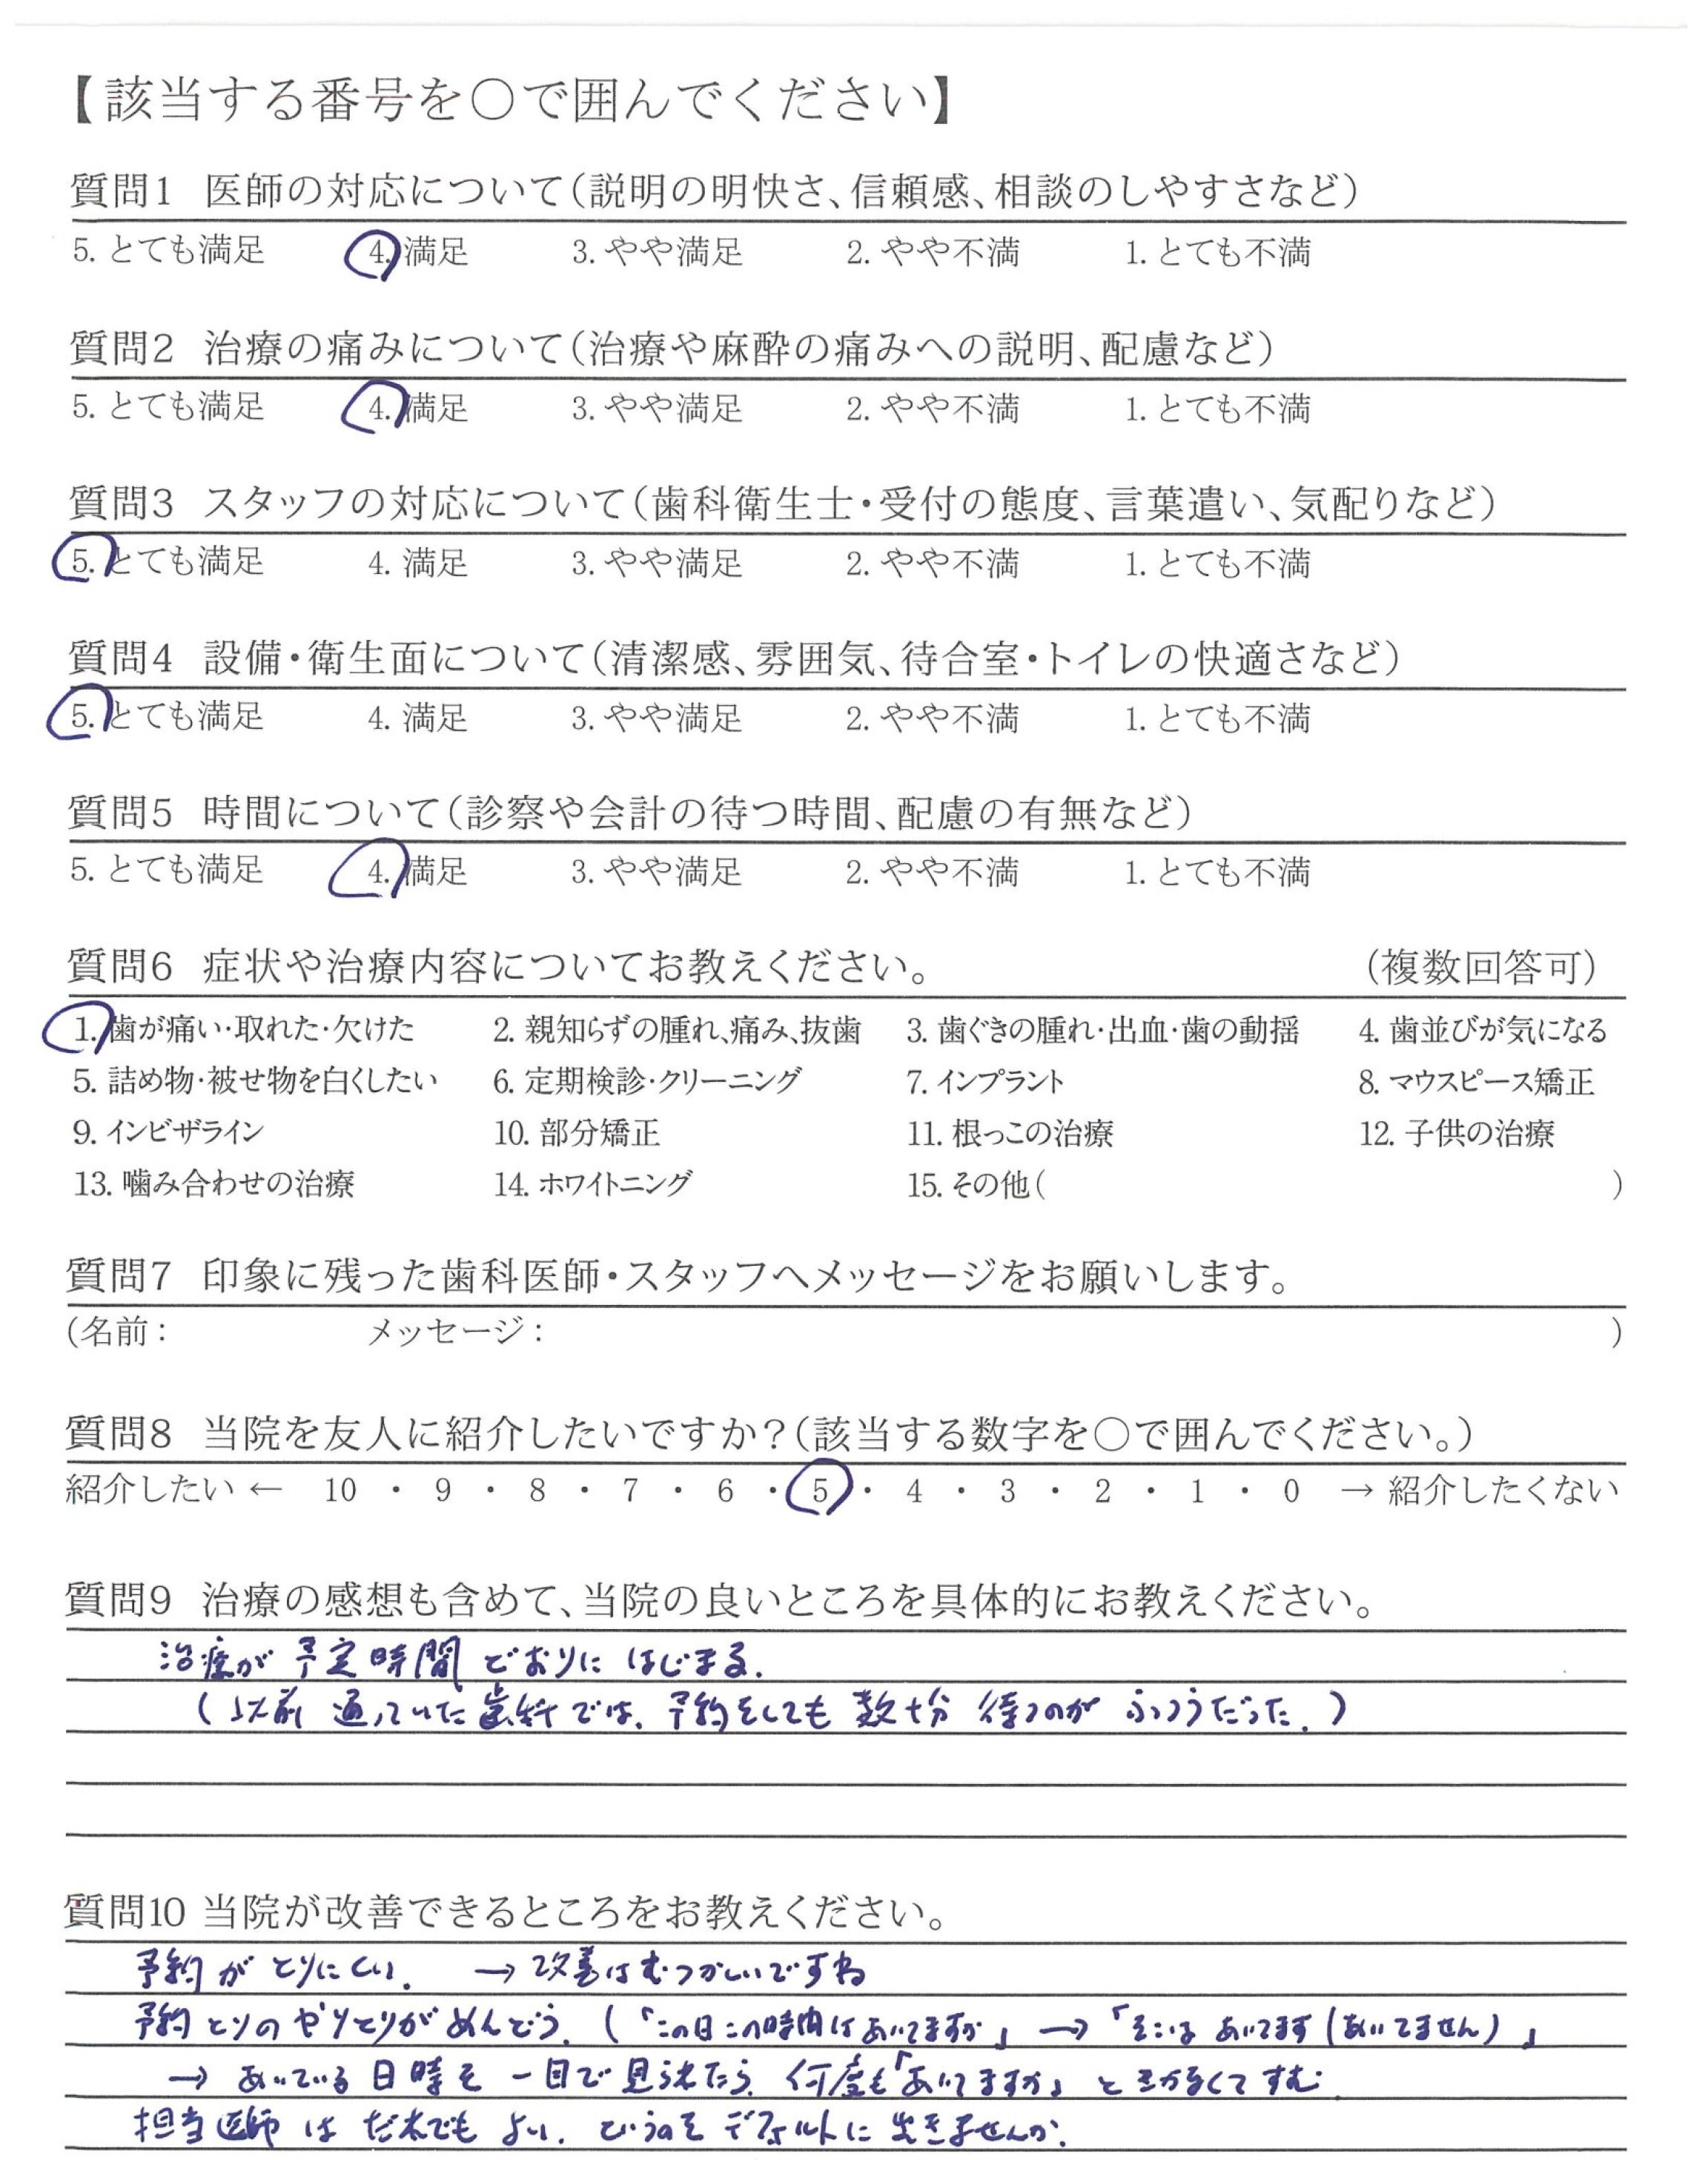 【該当する番号を〇で囲んでください】
質問1 医師の対応について(説明の明快さ、信頼感、相談のしやすさなど)
5. とても満足 4. 満足 3. やや満足 2. やや不満 1. とても不満
質問2 治療の痛みについて(治療や麻酔の痛みへの説明、配慮など)
5. とても満足 4. 満足 3. やや満足 2. やや不満 1. とても不満
質問3 スタッフの対応について(歯科衛生士・受付の態度、言葉遣い、気配りなど)
5. とても満足 4. 満足 3. やや満足 2. やや不満 1. とても不満
質問4 設備・衛生面について(清潔感、雰囲気、待合室・トイレの快適さなど)
5. とても満足 4. 満足 3. やや満足 2. やや不満 1. とても不満
質問5 時間について(診察や会計の待つ時間、配慮の有無など)
5. とても満足 4. 満足 3. やや満足 2. やや不満 1. とても不満
質問6 症状や治療内容についてお教えください。 (複数回答可)
1. 歯が痛い・取れた・欠けた 2. 親知らずの腫れ、痛み、抜歯 3. 歯ぐきの腫れ・出血・歯の動揺 4. 歯並びが気になる
5. 詰め物・被せ物を白くしたい 6. 定期検診・クリーニング 7. インプラント 8. マウスピース矯正
9. インビザライン 10. 部分矯正 11. 根っこの治療 12. 子供の治療
13. 噛み合わせの治療 14. ホワイトニング 15. その他( )
質問7 印象に残った歯科医師・スタッフへメッセージをお願いします。
(名前: メッセージ: )
質問8 当院を友人に紹介したいですか?(該当する数字を〇で囲んでください。)
紹介したい ← 10 ・ 9 ・ 8 ・ 7 ・ 6 ・ 5 ・ 4 ・ 3 ・ 2 ・ 1 ・ 0 → 紹介したくない
質問9 治療の感想も含めて、当院の良いところを具体的にお教えください。
治療が予定時間どおりにはじまる。
(以前通っていた歯科では、予約をしても数十分待つのがふつうだった。)
質問10 当院が改善できるところをお教えください。
予約がとりにくい。 → 改善はむつかしいですね
予約とりのやりとりがめんどう。(「この日この時間はあいてますか」→「そこはあいてます(あいてません)」
→ あいている日時を一目で見られたら、何度も「あいてますか」ときかなくてすむ
担当医師はだれでもよい、というのをデフォルトにできませんか。